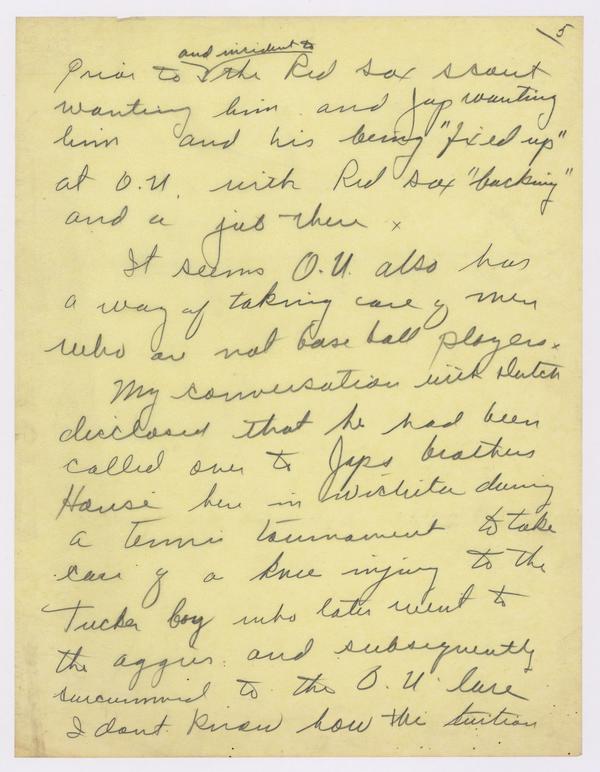 5
and incident to
Prior to the Red Sox scout
wanting him and Jap wanting
him and his being "fixed up"
at O.U. with Red Sox "backing"
and a job there x
It seems O.U. also has
a way of taking care of men
who are not base ball players x
My conversation with Dutch
disclosed that he had been
called over to Japs brothers
House here in Wichita during
a tennis tournament to take
care of a knee injury to the
Tucker boy who later went to
the aggies and subsequently
surcummed to the O.U. lure
I dont know how the tuition